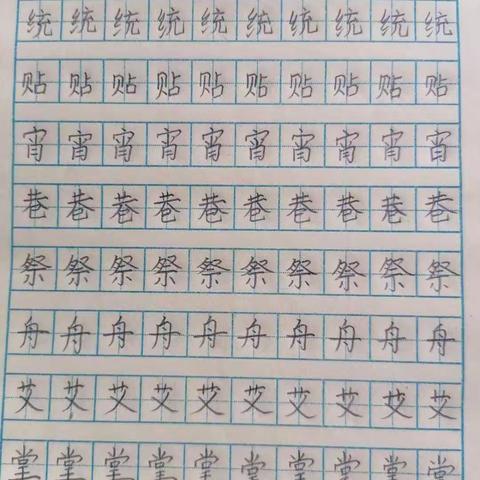 统 统 统 统 统 统 统 统 统 统
贴 贴 贴 贴 贴 贴 贴 贴 贴 贴
宵 宵 宵 宵 宵 宵 宵 宵 宵 宵
巷 巷 巷 巷 巷 巷 巷 巷 巷 巷
祭 祭 祭 祭 祭 祭 祭 祭 祭 祭
舟 舟 舟 舟 舟 舟 舟 舟 舟 舟
艾 艾 艾 艾 艾 艾 艾 艾 艾 艾
堂 堂 堂 堂 堂 堂 堂 堂 堂 堂